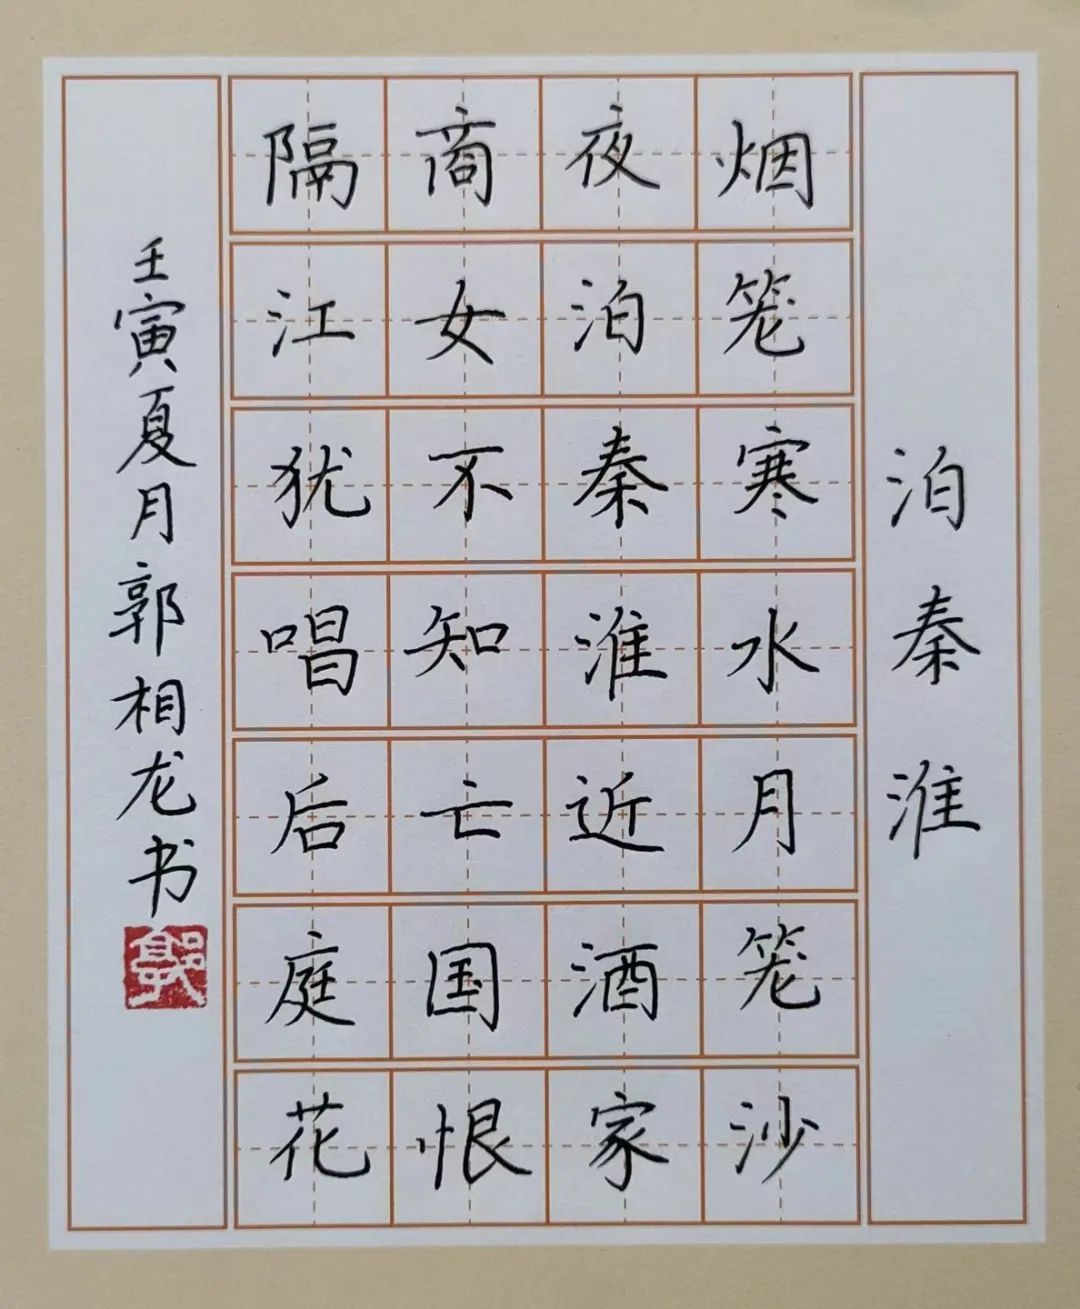 泊秦淮
烟笼寒水月笼沙
夜泊秦淮近酒家
商女不知亡国恨
隔江犹唱后庭花
壬寅夏月郭相龙书